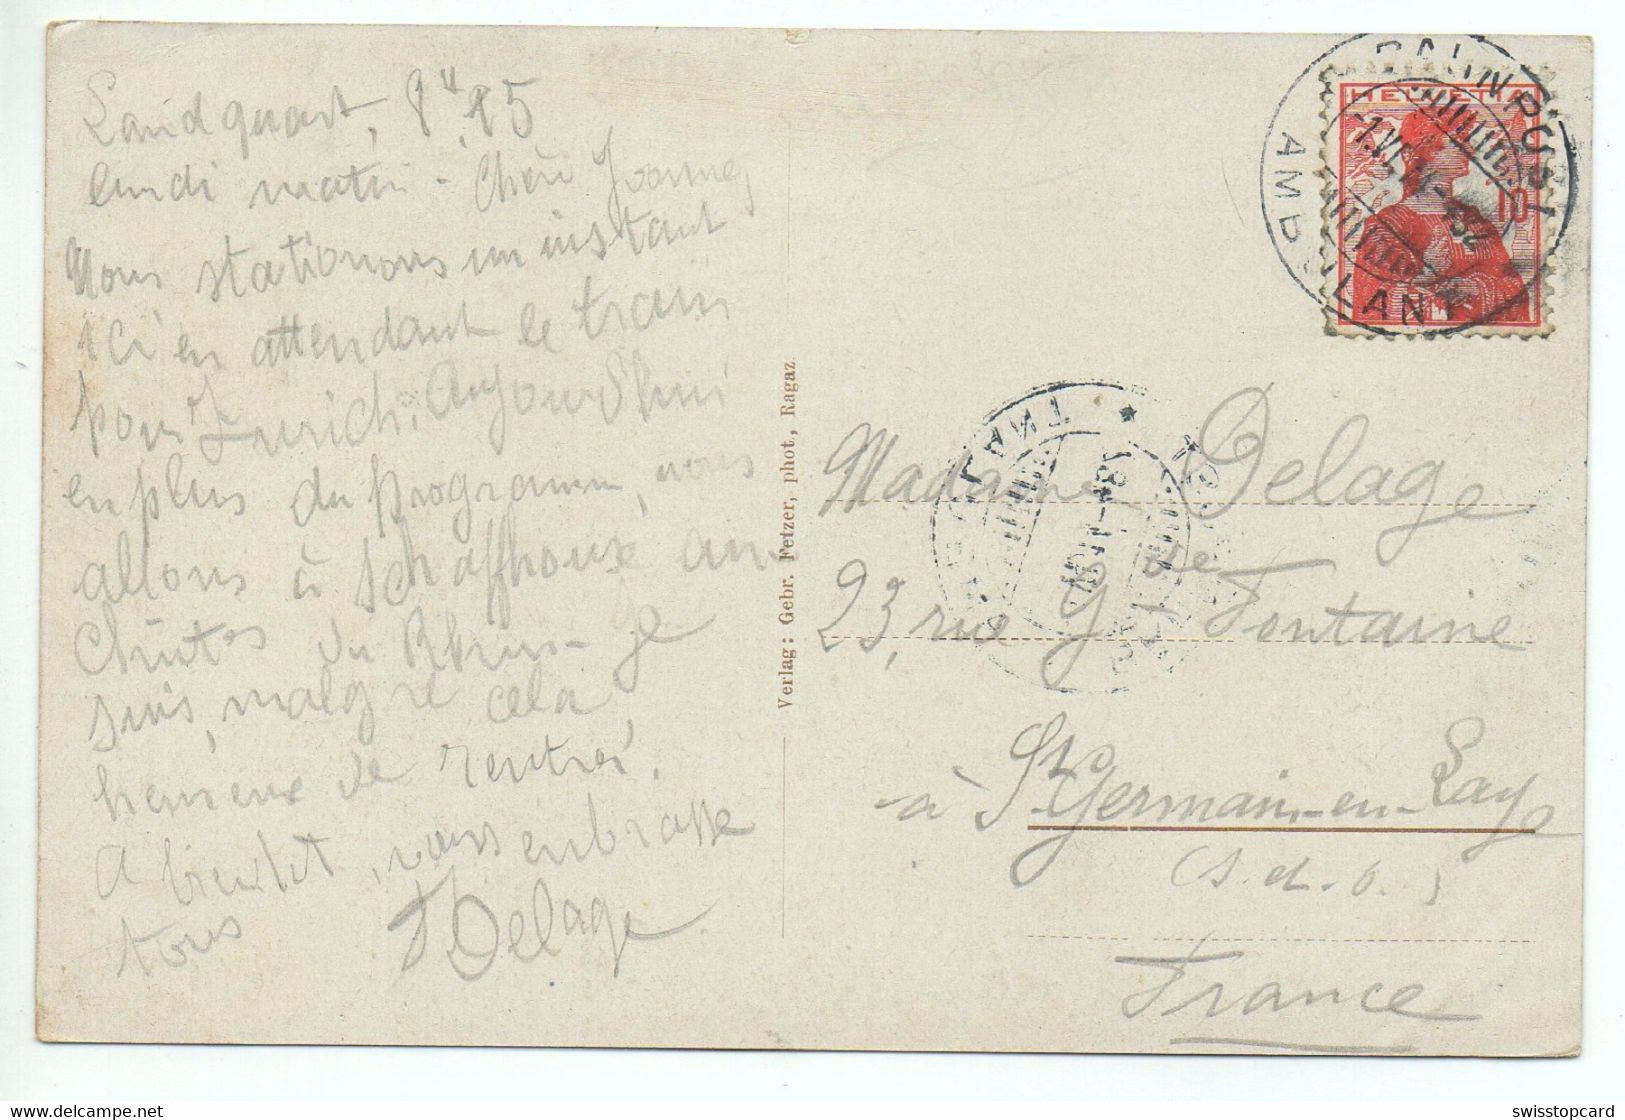 Landquart, 8 H. 15
lundi matin - Chère Yvonne,
Nous stationons un instant
ici en attendant le train
pour Zurich. Aujourd'hui
en plus du programme, nous
allons à Schaffhouse aux
Chutes du Rhin - je
suis, malgré cela
heureux de rentrer.
A bientôt, vous embrasse
tous Delage
Verlag: Gebr. Fetzer, phot., Ragaz
HELVETIA
10
BAHNPOST
AMBULANT
1.VI.14
Madame Delage
23, rue Gde Fontaine
à St Germain-en-Laye
(S. d. O.)
France
swisstopcard.com